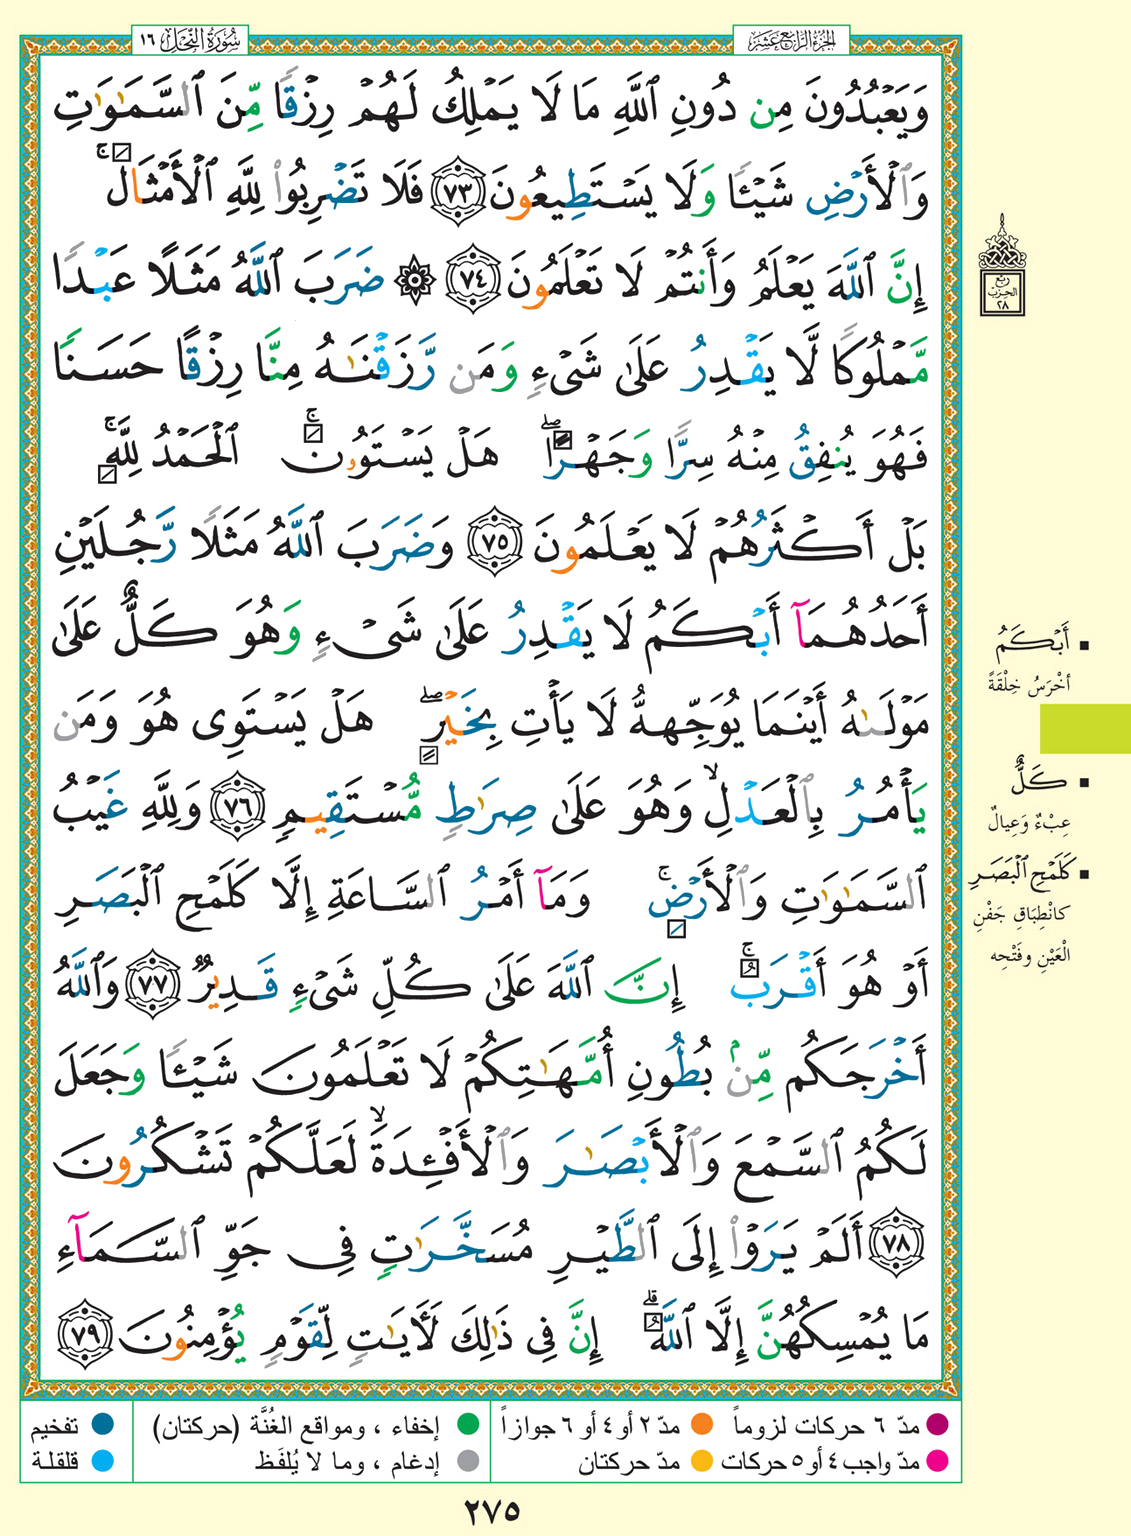 سُورَةُ النَّحْلِ ١٦
الجُزْءُ الرَّابِعَ عَشَرَ
وَيَعْبُدُونَ مِن دُونِ ٱللَّهِ مَا لَا يَمْلِكُ لَهُمْ رِزْقًا مِّنَ ٱلسَّمَٰوَٰتِ
وَٱلْأَرْضِ شَيْـًٔا وَلَا يَسْتَطِيعُونَ ٧٣ فَلَا تَضْرِبُوا۟ لِلَّهِ ٱلْأَمْثَالَ ۚ
إِنَّ ٱللَّهَ يَعْلَمُ وَأَنتُمْ لَا تَعْلَمُونَ ٧٤ ۞ ضَرَبَ ٱللَّهُ مَثَلًا عَبْدًا
مَّمْلُوكًا لَّا يَقْدِرُ عَلَىٰ شَىْءٍ وَمَن رَّزَقْنَٰهُ مِنَّا رِزْقًا حَسَنًا
فَهُوَ يُنفِقُ مِنْهُ سِرًّا وَجَهْرًا ۖ هَلْ يَسْتَوُۥنَ ۚ ٱلْحَمْدُ لِلَّهِ ۚ
بَلْ أَكْثَرُهُمْ لَا يَعْلَمُونَ ٧٥ وَضَرَبَ ٱللَّهُ مَثَلًا رَّجُلَيْنِ
أَحَدُهُمَآ أَبْكَمُ لَا يَقْدِرُ عَلَىٰ شَىْءٍ وَهُوَ كَلٌّ عَلَىٰ
مَوْلَىٰهُ أَيْنَمَا يُوَجِّههُّ لَا يَأْتِ بِخَيْرٍ ۖ هَلْ يَسْتَوِى هُوَ وَمَن
يَأْمُرُ بِٱلْعَدْلِ ۙ وَهُوَ عَلَىٰ صِرَٰطٍ مُّسْتَقِيمٍ ٧٦ وَلِلَّهِ غَيْبُ
ٱلسَّمَٰوَٰتِ وَٱلْأَرْضِ ۚ وَمَآ أَمْرُ ٱلسَّاعَةِ إِلَّا كَلَمْحِ ٱلْبَصَرِ
أَوْ هُوَ أَقْرَبُ ۚ إِنَّ ٱللَّهَ عَلَىٰ كُلِّ شَىْءٍ قَدِيرٌ ٧٧ وَٱللَّهُ
أَخْرَجَكُم مِّنۢ بُطُونِ أُمَّهَٰتِكُمْ لَا تَعْلَمُونَ شَيْـًٔا وَجَعَلَ
لَكُمُ ٱلسَّمْعَ وَٱلْأَبْصَٰرَ وَٱلْأَفْـِٔدَةَ ۙ لَعَلَّكُمْ تَشْكُرُونَ
٧٨ أَلَمْ يَرَوْا۟ إِلَى ٱلطَّيْرِ مُسَخَّرَٰتٍ فِى جَوِّ ٱلسَّمَآءِ
مَا يُمْسِكُهُنَّ إِلَّا ٱللَّهُ ۗ إِنَّ فِى ذَٰلِكَ لَءَايَٰتٍ لِّقَوْمٍ يُؤْمِنُونَ ٧٩
ربع
الحزب
٢٨
أَبْكَمُ
أَخْرَسُ خِلْقَةً
كَلٌّ
عِبْءٌ وَعِيالٌ
كَلَمْحِ ٱلْبَصَرِ
كانْطِبَاقِ جَفْنِ
الْعَيْنِ وفَتْحِه
مدّ ٦ حركات لزوماً
مدّ ٢ أو ٤ أو ٦ جوازاً
إخفاء ، ومواقع الغُنَّة (حركتان)
تفخيم
مدّ واجب ٤ أو ٥ حركات
مدّ حركتان
إدغام ، وما لا يُلفَظ
قلقلة
٢٧٥